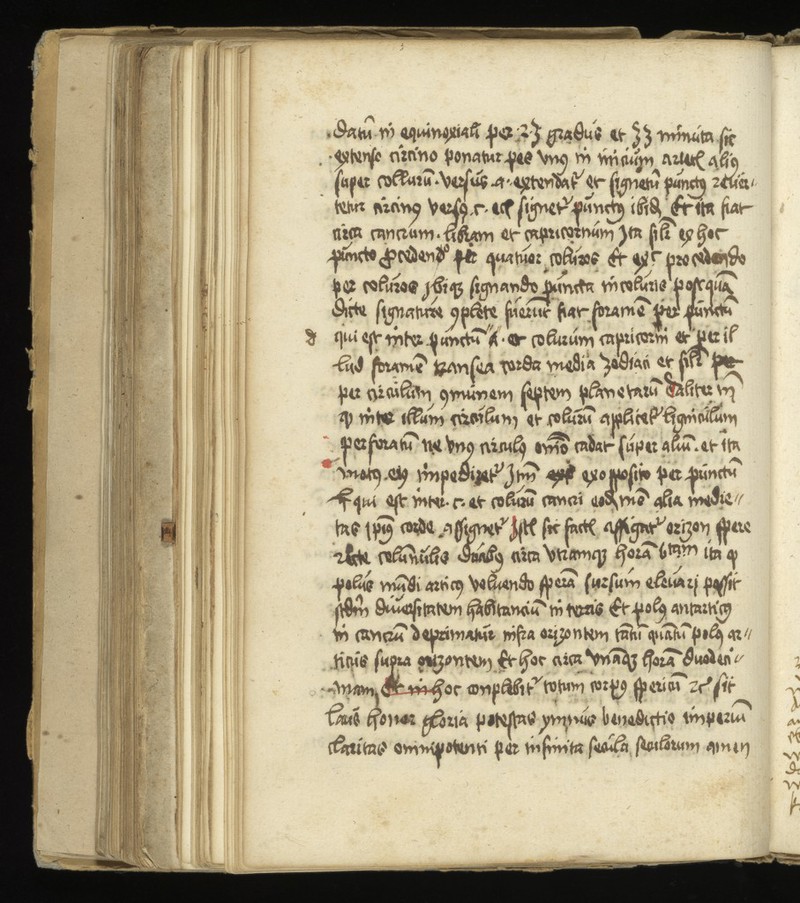 datū in equinoxiali per 23 gradus et 33 minuta sic
extenso circino ponatur pes vnus in inicium arietis alius
super collurū versus .a. extendat᷑ et signet᷑ punctus reuer〃
tetur circinus versus .c. etc signet᷑ punctus ibidē Et ita fiat
circa cancrum libram et capricornum Ita silr ex hoc
puncto procedendo per quatuor coluros Et ex c procedendo
per coluros ibiqꝫ signando puncta in coluris postquā
dicte signature 9plete fuerint fiat foramē per punctū
d qui est inter punctū a. et colurum capricorni et per il
lud foramē transeat corda media zodiaci et silr per
per circulum 9munem septem planetarū taliter in
ꝙ inter illum circulum et colurū applicet᷑ lignículum
perforatū ne vnus circulus omīo cadat super aliū. et ita
motus eius impediret᷑ Itm̄ exopposito per punctū
f qui est inter .c. et colurū cancri eodē mō alia medie〃
tas ipius corde assignet᷑ sic factis affigat᷑ orizon spere
recte columnis duabus circa vtramqꝫ horā 6tam ita ꝙ
polus mūdi articus voluendo sperā sursum eleuari possit
scdm̄ diuersitatem habitancium in terris Et polus antarticus
in cancrū deprimatur infra orizontem tātū quātū polus ar〃
ticus supra orizontem Et hoc circa vnāqꝫ horā duodeci〃
mam Et in hoc conplebit᷑ totum corpus spericū ⁊c sit
laus honor gloria potestas ymnus benedictio imperiū
claritas omnipotenti per infinita secula seculorum amen